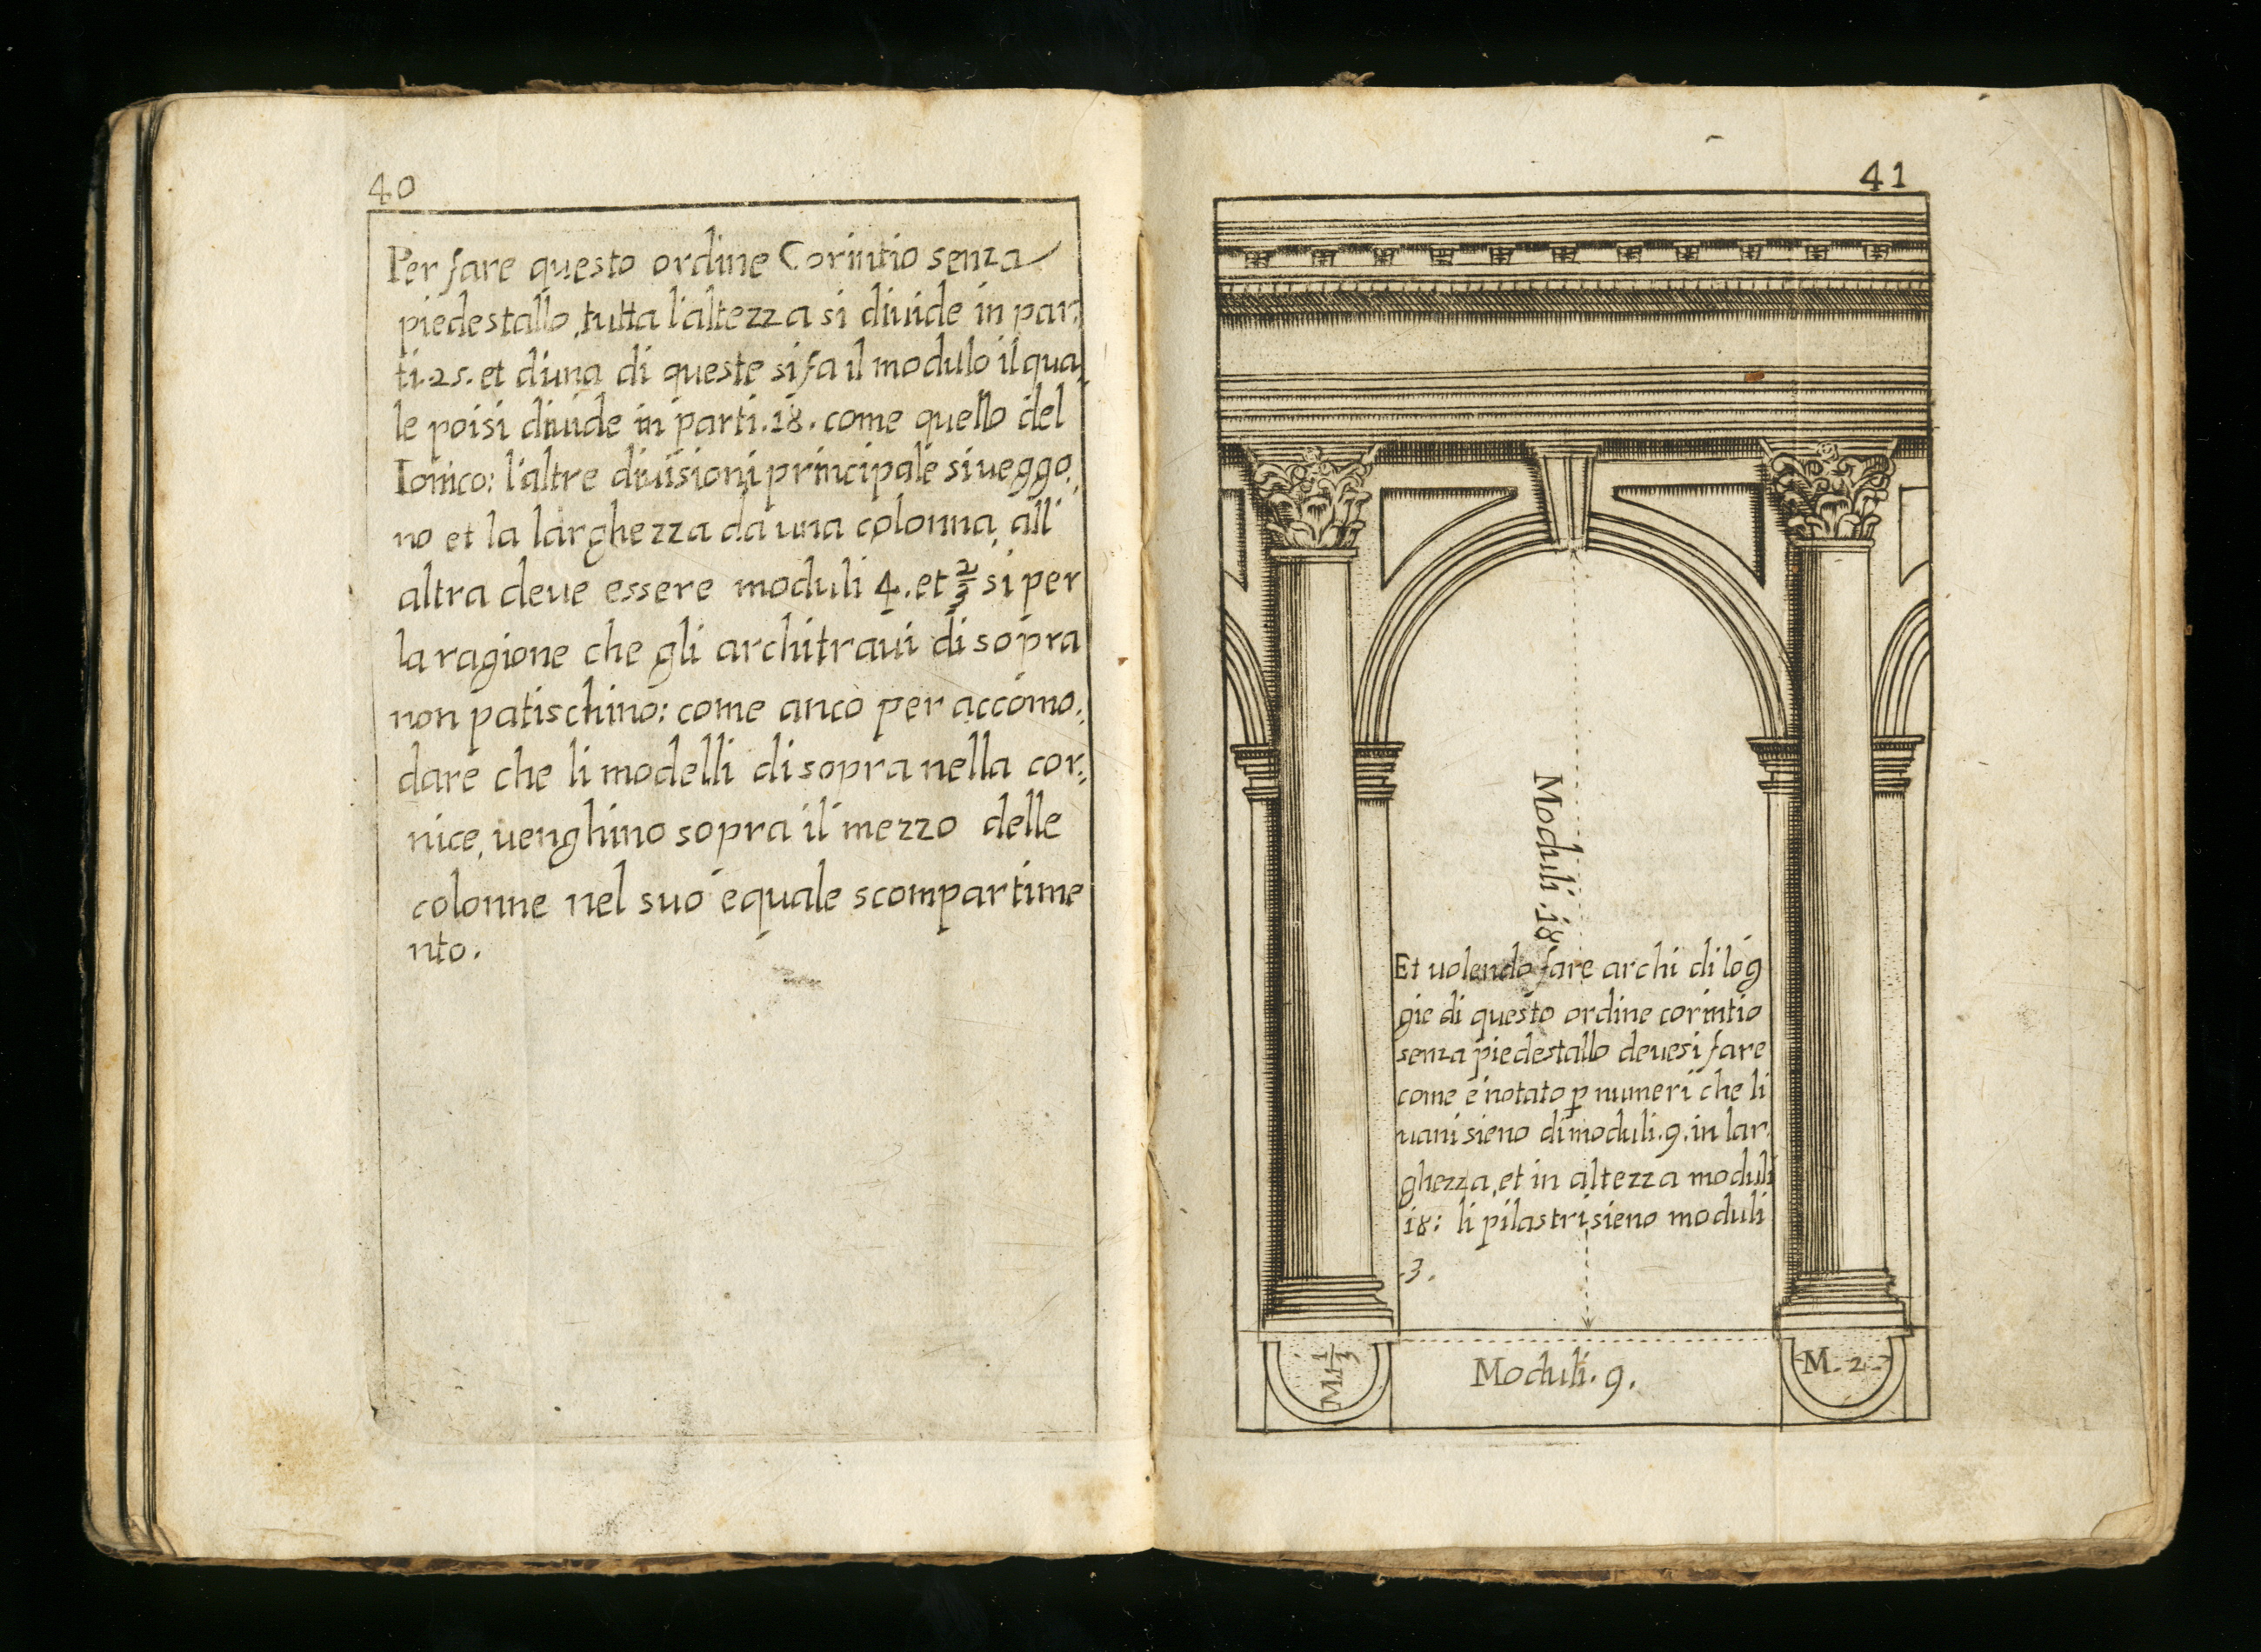 40
Per fare questo ordine Corintio senza
piedestallo, tutta l'altezza si diuide in par:
ti.25. et d'una di queste si fa il modulo il qua
le poi si diuide in parti.18. come quello del
Ionico: l'altre diuisioni principale si ueggo:
no et la larghezza da una colonna all'
altra deue essere moduli 4. et 2/3 si per
la ragione che gli architraui di sopra
non patischino: come anco per accomo:
dare che li modelli di sopra nella cor:
nice, uenghino sopra il mezzo delle
colonne nel suo equale scompartime
nto.
41
Moduli.18
Et uolendo fare archi di log
gie di questo ordine corintio
senza piedestallo deuesi fare
come e notato p numeri che li
uani sieno di moduli.9. in lar
ghezza, et in altezza moduli
18: li pilastri sieno moduli
.3.
Moduli.9.
M. 2